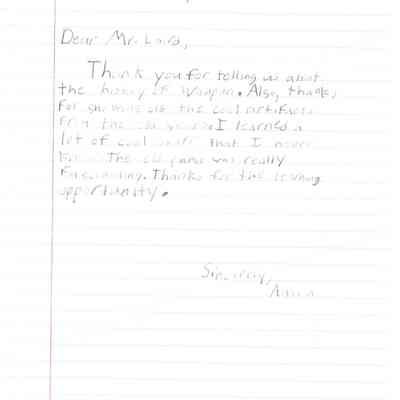 Dear Mr. Laird,
Thank you for telling us about
the history of Waupun. Also, thanks
for showing us the cool artifacts
from the old I learned a
lot of cool stuff that I never
The old was really
fascinating. Thanks for the learning
opportunity.
Sincerely,